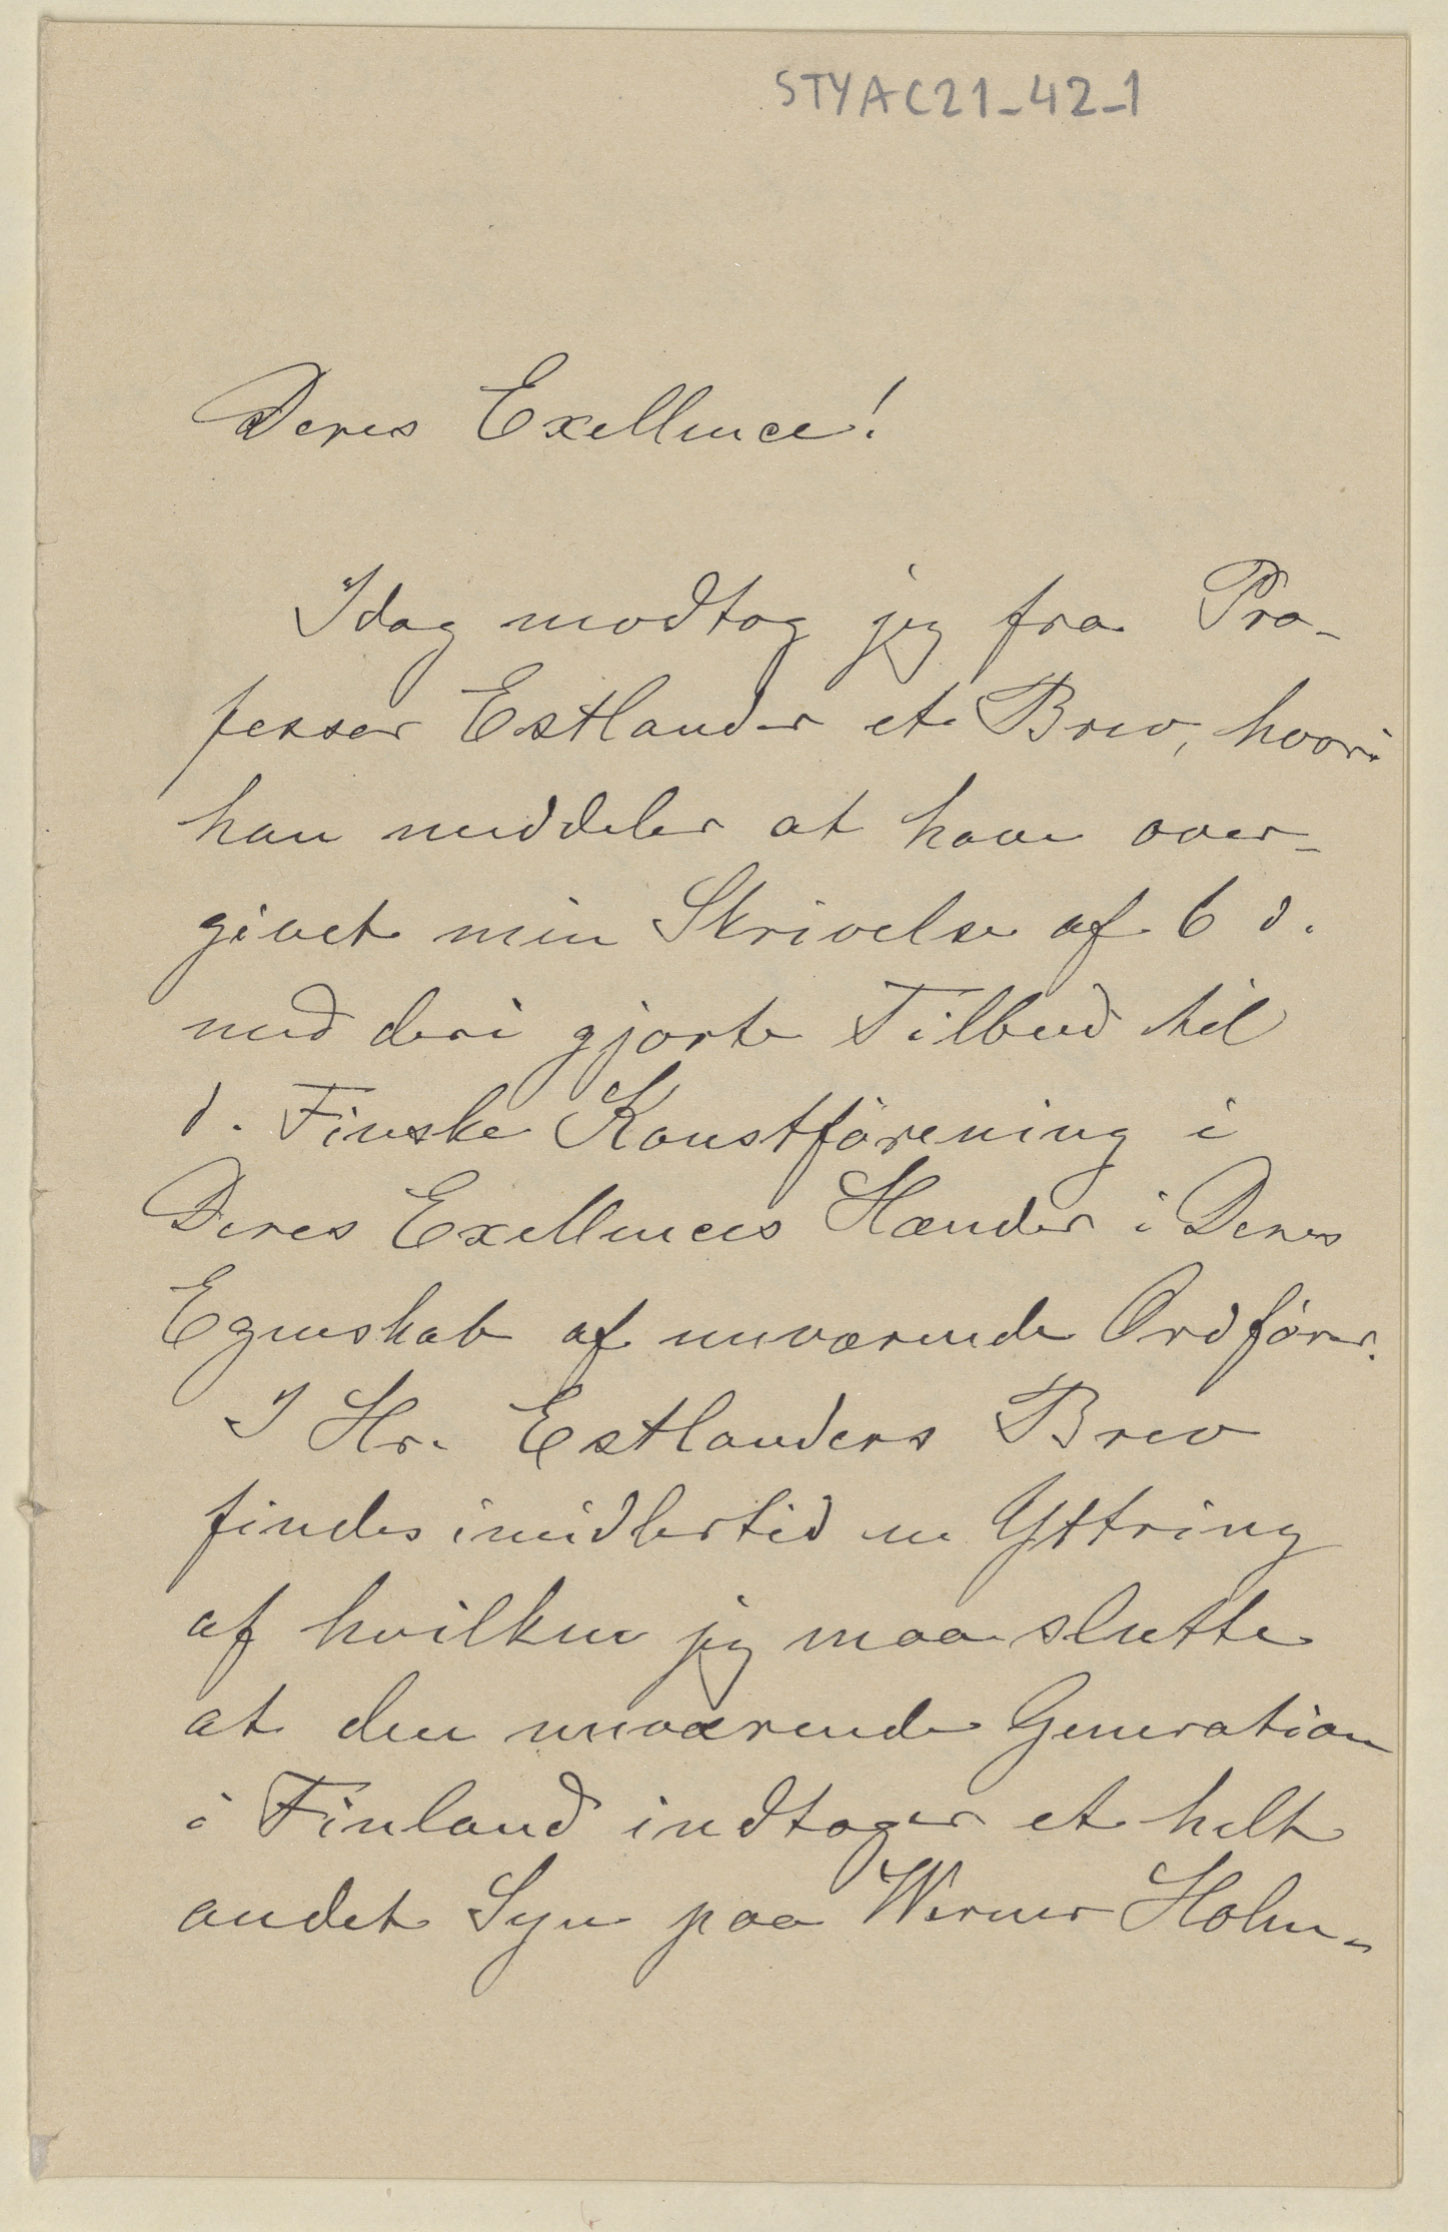 STYAC21_42_1
Deres Exellence!
Idag modtog jeg fra Pro-
fessor Estlander et Brev, hvori
han meddeler at have over-
givet min Skrivelse af 6 d.
med deri gjorte Tilbud til
d. Finske Konstförening i
Deres Exellences Hænder i Deres
Egenskab af nuværende Ordförer.
I Hr. Estlanders Brev
findes imidlertid en Yttring
af hvilken jeg maa slutte
at den nuværende Generation
i Finland indtager et helt
andet Syn paa Werner Holm-